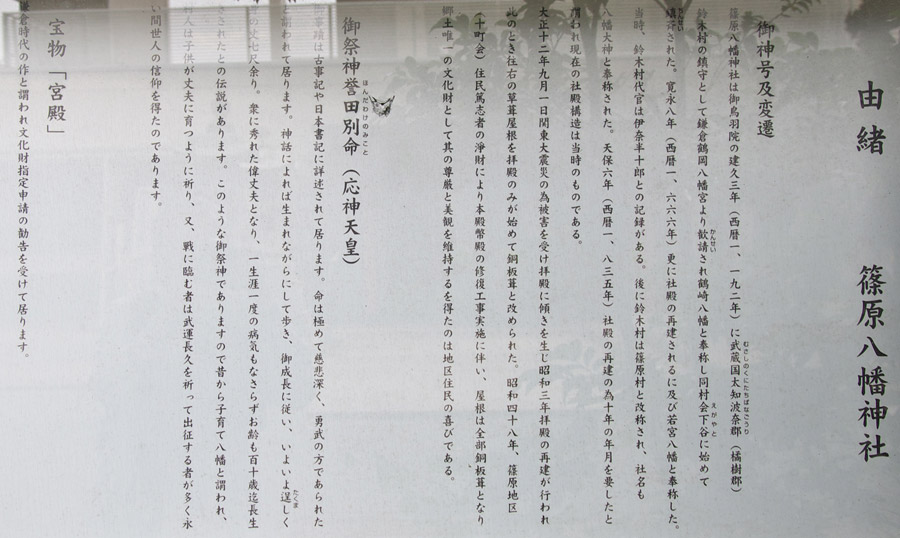 由緒　篠原八幡神社
御神号及変遷
篠原八幡神社は御鳥羽院の建久三年（西暦一、一九二年）に武蔵国太知波奈郡（橘樹郡）
鈴木村の鎮守として鎌倉鶴岡八幡宮より歓請され鶴崎八幡と奉称し同村会下谷に始めて
された。寛永八年（西暦一、六六六年）更に社殿の再建されるに及び若宮八幡と奉称した。
当時、鈴木村代官は伊奈半十郎との記録がある。後に鈴木村は篠原村と改称され、社名も
八幡大神と奉称された。天保六年（西暦一、八三五年）社殿の再建の為十年の年月を要したと
謂われ現在の社殿構造は当時のものである。
大正十二年九月一日関東大震災の為被害を受け拝殿に傾きを生じ昭和三年拝殿の再建が行われ
此のとき往右の草葺屋根を拝殿のみが始めて銅板葺と改められた。昭和四十八年、篠原地区
（十町会）住民篤志者の浄財により本殿幣殿の修復工事実施に伴い、屋根は全部銅板葺となり
郷土唯一の文化財として其の尊厳と美観を維持するを得たのは地区住民の喜びである。
御祭神誉田別命（応神天皇）
蹟は古事記や日本書記に詳述されて居ります。命は極めて慈悲深く、勇武の方であられた
謂われて居ります。神話によれば生まれながらにして歩き、御成長に従い、いよいよ逞しく
丈七尺余り。衆に秀れた偉丈夫となり、一生涯一度の病気もなさらずお齢も百十歳迄長生
されたとの伝説があります。このような御祭神でありますので昔から子育て八幡と謂われ、
人は子供が丈夫に育つように祈り、又、戦に臨む者は武運長久を祈って出征する者が多く永
い間世人の信仰を得たのであります。
宝物「宮殿」
倉時代の作と謂われ文化財指定申請の勧告を受けて居ります。